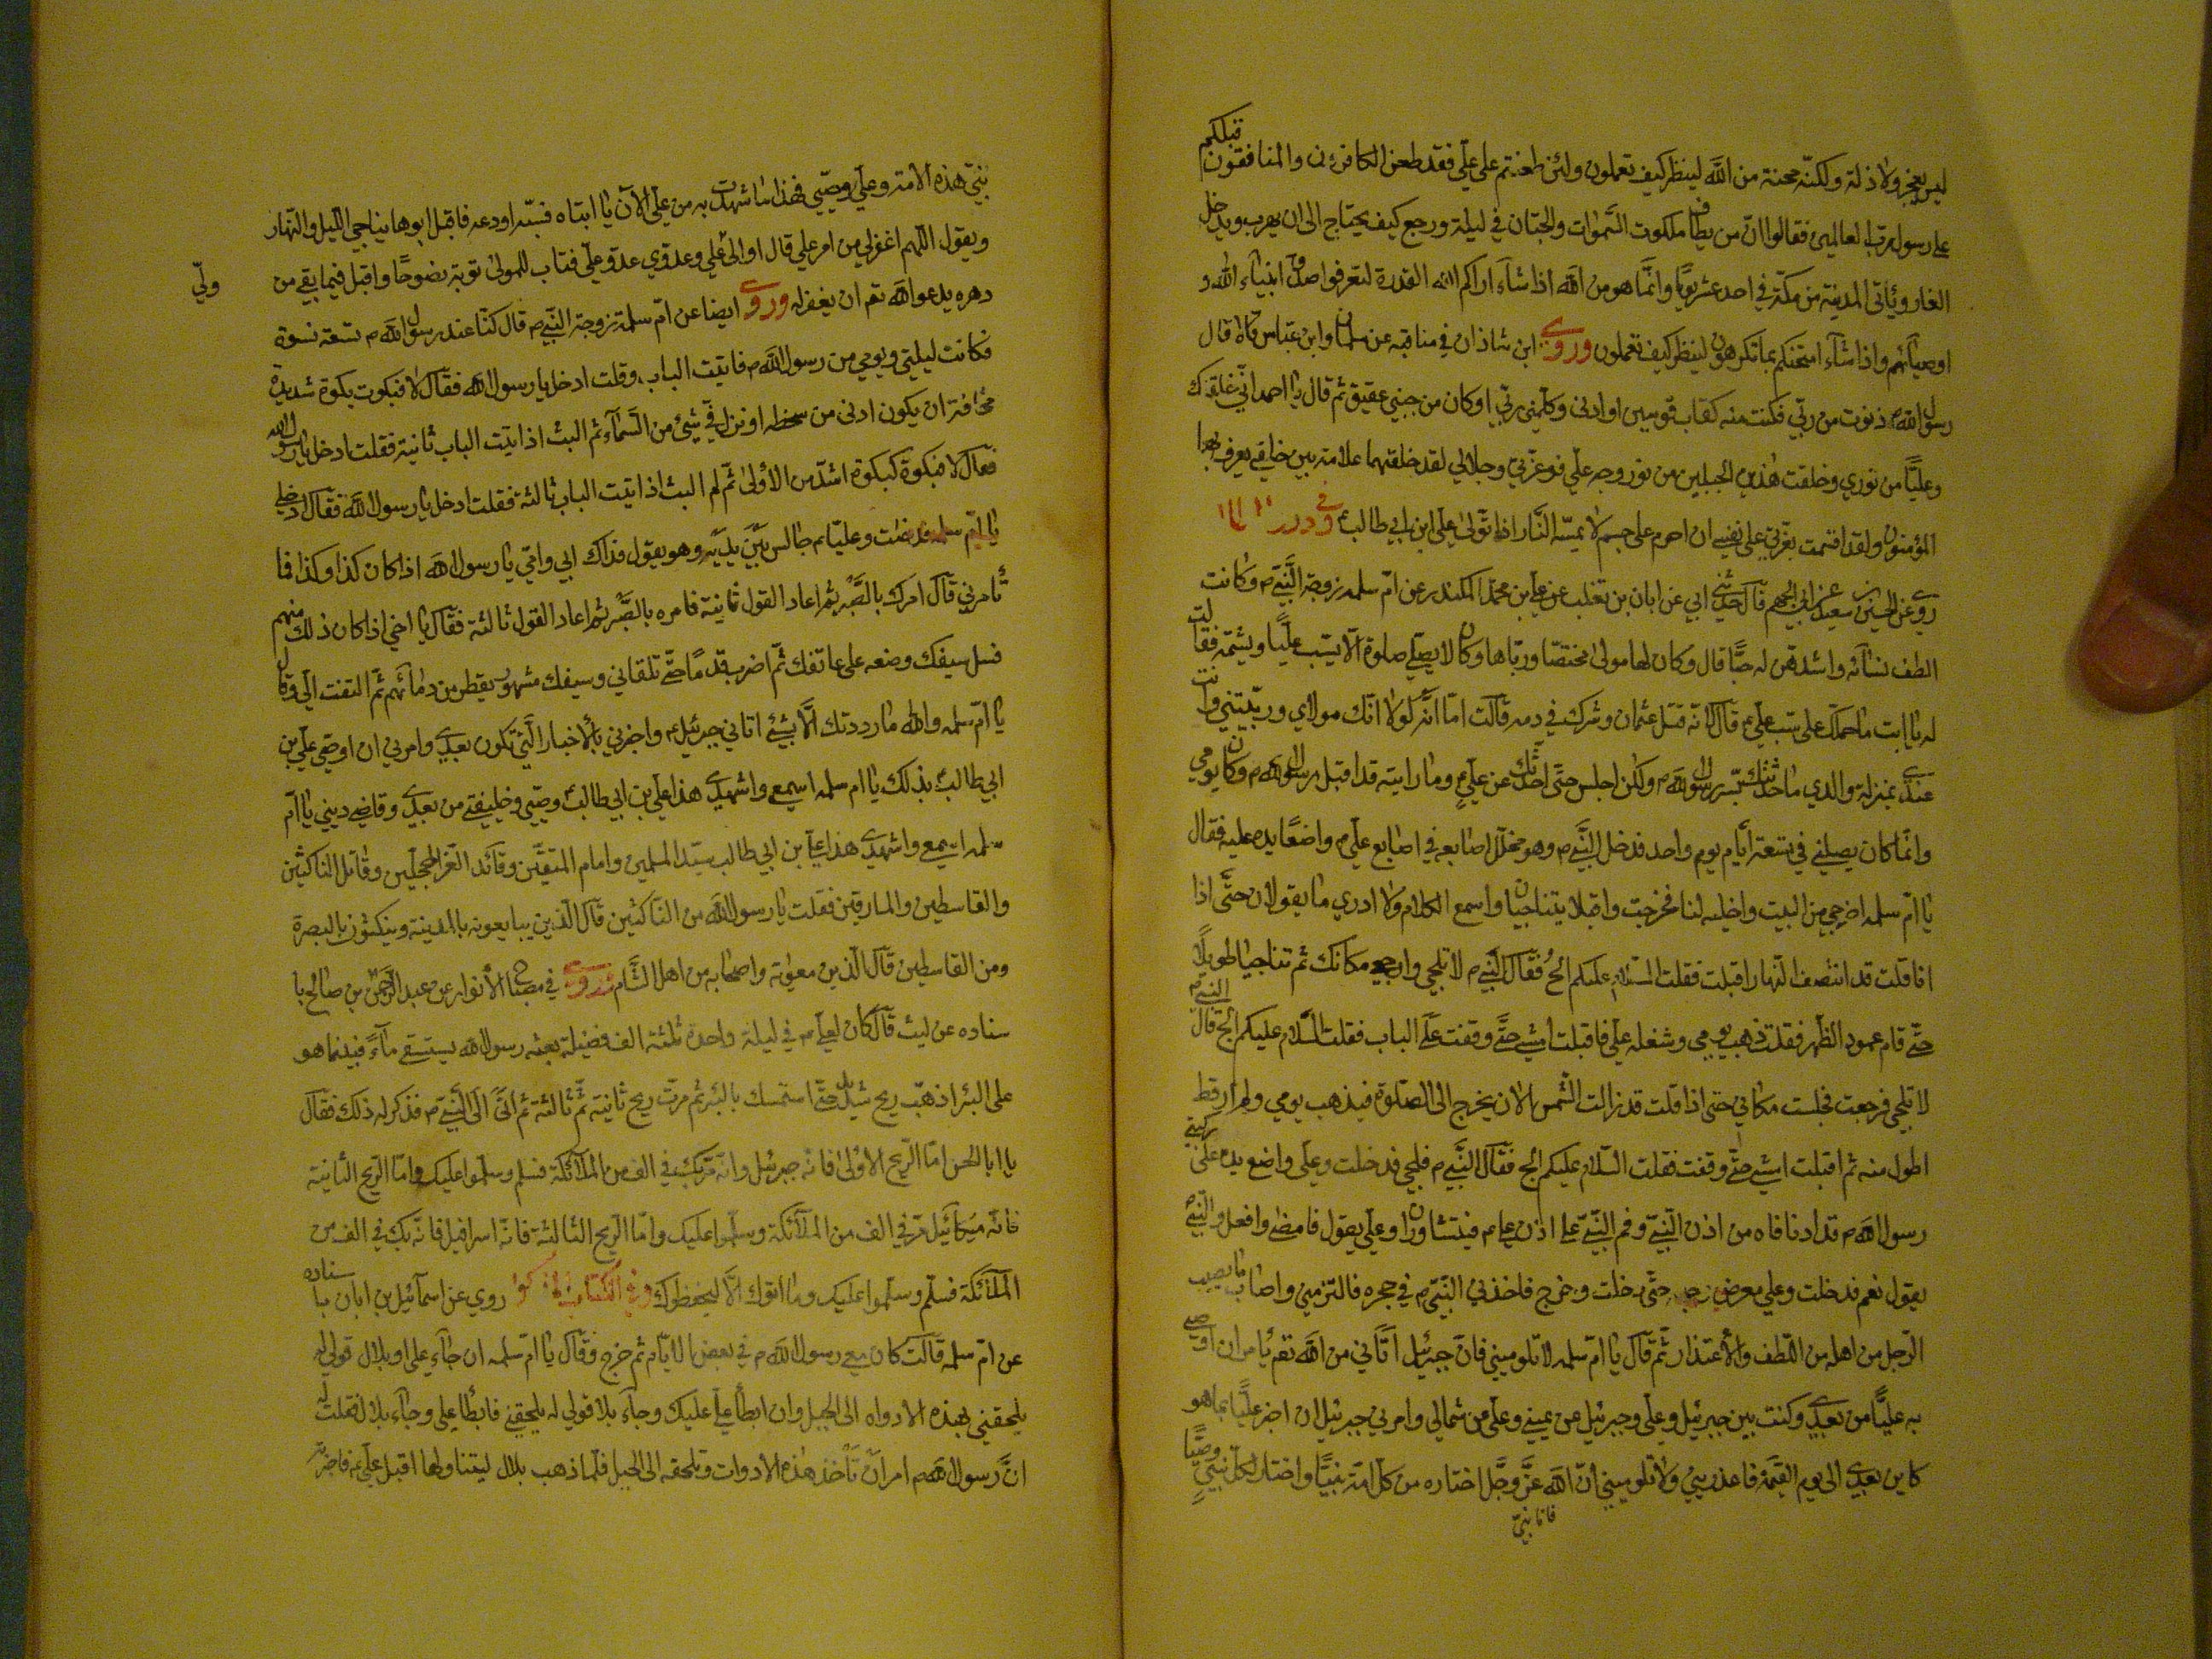 قبلكم
ليس بعجز ولا ذلة ولكنّه محنة من الله لينظر كيف تعملون ولئن طعنتم على علّي فقد طعن الكافرون والمنافقون
على رسول رب العالمين فقالوا انّ من يطاف ملكوت السّموات والجنان في ليلة ورجع كيف يحتاج الى ان يهرب ويدخل
الغار ويأتى المدينة من مكّة في احد عشر يومًا وانّما هو من الله اذا شاء اراكم القدرة لتعرفوا صدق انبياء الله و
اوصيائهم واذا شاء امتحنكم بما تكرهون لينظر كيف تعملون وروى ابن شاذان في مناقبه عن سلمان وابن عبّاس قالا قال
رسول الله دنوت من ربّي فكنت منه كقاب قوسين او ادنى وكلّمني ربّي وكان من جبلي عقيق ثم قال يا احمد انّي خلقتك
وعليًّا من نوري وخلقت هذين الجبلين من نور وجه علّي فوعزّتي وجلالي لقد خلقتهما علامة بين خلقي يعرف بها
المؤمنون ولقد اقسمت بعزّتي على نفسي ان احرم على جسم لا يمسّه النّار اذا تولّى علّي ابن ابي طالب
روي عن الحسين سعيد عن ابي الجهم قال حدثني ابي عن ابان بن تغلب عن علي بن محمد المكندر عن امّ سلمه زوجة النّبيّ م وكانت
الطف نسائه واشدهن له حبًّا قال وكان لها مولى يختصّها وربّاها وكان لا يصلّي صلوة الّا يسب عليًّا ويشتمه فقالت
له يا ابت ما حملك على سب علّي م قال لانّه قتل عثمان وشرك في دمه قالت امّا انّه لولا انّك مولاي وربّيتني وانت
عندي بمنزلة والدي ما حدثتك بسّر رسول الله م ولكن اجلس حتّى احدّثك عن علّي وما رايته قد اقبل رسول الله م وكان يومي
وانّما كان يصيبني في تسعة أيّام يوم واحد فدخل النّبي م وهو مخلل اصابعه في اصابع علّي م واضعًا يده عليه فقال
يا امّ سلمه اخرجي من البيت واخليه لنا فخرجت واقبلا يتناجيان واسمع الكلام ولا ادري ما يقولان حتّى اذا
انا قلت قد انتصف النّهار اقبلت فقلت السلام عليكم الجُ فقال النّبي م لا تلجي وارجعي مكانك ثم تناجيا طويلًا
حتّى قام عمود الظّهر فقلت ذهب يومي وشغله علّي فاقبلت امشي حتّى وقفت على الباب فقلت السّلام عليكم الج قال النبي م
لا تلجي فرجعت فجلست مكاني حتى اذا قلت قد زالت الشّمس الان يخرج الى الصّلوة فيذهب يومي ولم ار قط
اطول منه ثم اقبلت امشي حتّى وقفت فقلت السّلام عليكم الج فقال النّبي م فلجي فدخلت وعلّي واضع يده على ركبتي
رسول الله م قد ادنا فاه من اذن النّبيّ وفم النّبيّ على اذن علي م فيتشاوران وعلّي يقول فامضي وافعل والنّبيّ
يقول نعم فدخلت وعلي معرض حتّى دخلت وخرج فاخذني النّبيّ م في حجره فالتزمني واصاب ما يصيب
الرّجل من اهله من اللّطف والأعتذار ثمّ قال يا امّ سلمه لا تلوميني فانّ جبرئيل اتاني من الله تعم يأمر ان اوصي
به عليًّا من بعدي وكنت بين جبرئيل وعلّي وجبرئيل عن يميني وعلّي عن شمالي وامرني جبرئيل ان اخبر عليًّا بما هو
كاين بعدي الى يوم القيمة فاعذريني ولا تلوميني انّ الله عزّ وجلّ اختاره من كل امّة نبيًّا واختار لكل نبيٍّ وصيًّا
فانا نبيّ
نبيّ هذه الامة وعلّي وصيّي فهذا ما شهدت به من علّي الآن يا ابتاه فسبّه او دعه فاقبل ابوها يناجي اللّيل والنّهار
ويقول اللّهم اغفر لي من امر علي قال اوالى علي وعدوّي عدوّ علّي فتاب للمولى توبة نصوحًا واقبل فيما بقي من
وليّ
دهره يدعو الله تعم ان يغفر له وروى ايضا عن امّ سلمة زوجة النّبيّ م قال كنّا عند رسول الله م تسعة نسوة
فكانت ليلتي ويومي من رسول الله م فاتيت الباب وقلت ادخل يا رسول الله فقال لا فبكوت بكوة شديدة
مخافة ان يكون ادنى من سخطه او نزل فّي شيء من السّماء ثم البث اذ اتيت الباب ثانية فقلت ادخل يا رسول الله
فقال لا فبكوة كبكوة اشدّ من الأولى ثمّ لم البث اذ اتيت الباب ثالثة فقلت ادخل يا رسول الله فقال ادخلي
يا امّ سلمه فدخلت وعليّ م جالس بين يديه وهو يقول فداك ابي وامّي يا رسول الله اذا كان كذا وكذا فما
تأمرني قال امرك بالصّبر ثمّ اعاد القول ثانية فامره بالصّبر ثمّ اعاد القول ثالثة فقال يا اخي اذا كان ذلك منهم
فسل سيفك وضعه على عاتقك ثمّ اضرب قدمًا حتّى تلقاني وسيفك مشهور يقطر من دمائهم ثمّ التفت الّي وقال
يا امّ سلمه والله ما رددتك الّا بشيء اتاني جبرئيل م واخبرني بالأخبار الّتي تكون بعدي وامرني ان اوصي علّي بن
ابي طالب بذلك يا ام سلمه اسمع واشهدي هذا علّي بن ابي طالب وصيّي وخليفتي من بعدي وقاضي ديني يا امّ
سلمه اسمع واشهدي هذا علي بن ابي طالب سيّد المسلمين وامام المتقين وقائد الغّر المحجلين وقاتل الناكثين
والقاسطين والمارقين فقلت يا رسول الله من النّاكثين قال الّذين يبايعونه بالمدينة وينكثون بالبصرة
ومن القاسطين قال الّذين معوية واصحابه من اهل الشّام وروي في مصباح الأنوار عن عبد الرّحمن بن صالح با
سناده عن ليث قال كان لعلّي م في ليلة واحدة ثلثة الف فضيلة بعثه رسول الله يستسقي ماءً فبينما هو
على البئر اذ هبّت ريح شديدة حتّى استمسك بالبئر ثم مرت ريح ثانية ثمّ ثالثة ثم اتى الى النّبيّ م فذكر له ذلك فقال
يا ابا الحسن امّا الرّيح الاولى فانّه جبرئيل وانّه مرّ بك في الف من الملائكة فسلم وسلّموا عليك وامّا الرّيح الثانية
فانّه ميكائيل مرّ في الف من الملائكة وسلّموا عليك وامّا الرّيح الثالثة فانّه اسرافيل فانّه بك في الف من
الملائكة فسلّم وسلّموا عليك وما اتوك الّا ليحفظوك وفي الكتاب المذكور روي عن اسمائيل بن ابان با سناده
عن امّ سلمه قالت كان معي رسول الله م في بعض الايّام ثم خرج وقال يا امّ سلمه ان جاء علي او بلال قولي له
يلحقني بهذه الادواه الى الجبل وان ابطأ علي عليك وجاء بلا قولي له يلحقني فابطأ علي وجاء بلال فقلت له
انّ رسول الله م امر ان تأخذ هذه الادوات وتلحقه الى الجبل فلمّا ذهب بلال ليتناولها اقبل علي م فاخبرته